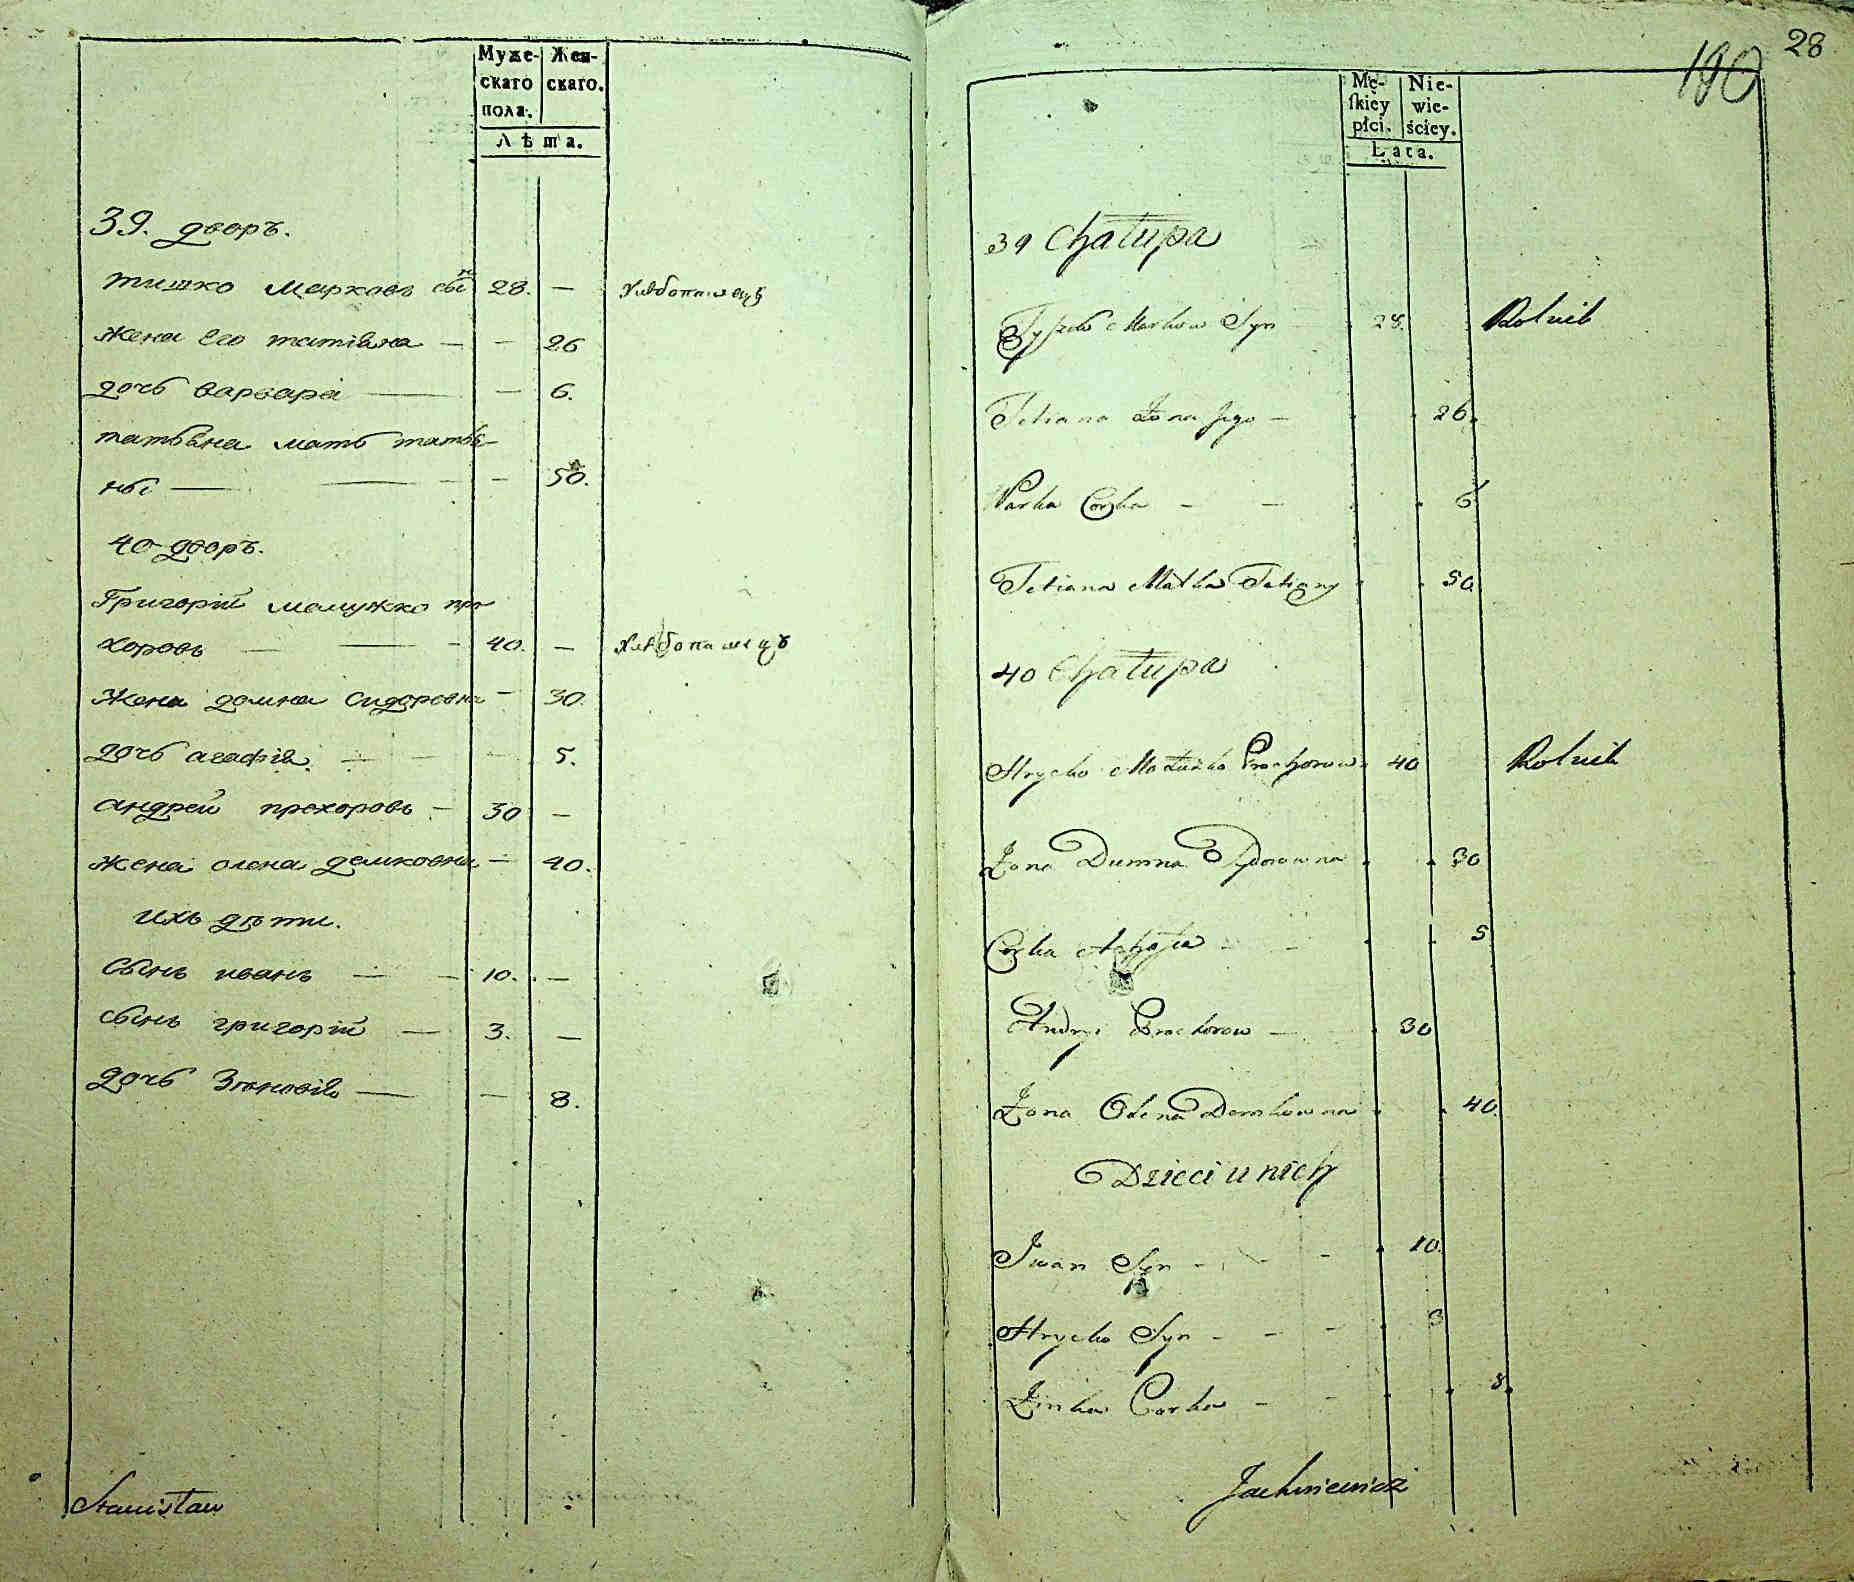 Муже-
скаго
пола.
Жен-
скаго.
Лѣта.
39. дворъ.
тишко марковъ сынъ 28. — хлѣбопашецъ
жена его татіяна — — 26
дочь варвара — — 6.
татьяна мать татья-
ны — — — 50.
40 дворъ.
Григорій мамужко про
хоровъ — — 40. — хлѣбопашецъ
жена домна сидоровна — 30.
дочь агафія. — — — 5.
андрей прохоровъ — 30 —
жена олена демковна — 40.
ихъ дѣти.
сынъ иванъ — — 10. —
сынъ григорій — 3. —
дочь Зѣновія — — 8.
Stanisław
28
190
Mę-
skiey
płci.
Nie-
wie-
ściey.
Lata.
39 Chałupa
Tyszko Markow Syn 28. Rolnik
Tetiana Żona Jego — 26.
Warka Corka — — 6
Tetiana Matka Tetiany 50
40 Chałupa
Hrycko Mamużko Prochorow 40 Rolnik
Żona Dumna Sydorowna 30
Corka Ahafia — — 5
Andryi Prochorow — 30
Żona Olena Demkowna 40.
Dzieci u nich
Iwan Syn - - - 10.
Hrycko Syn - - - 3
Zinka Corka - - 8.
Jachniewicz